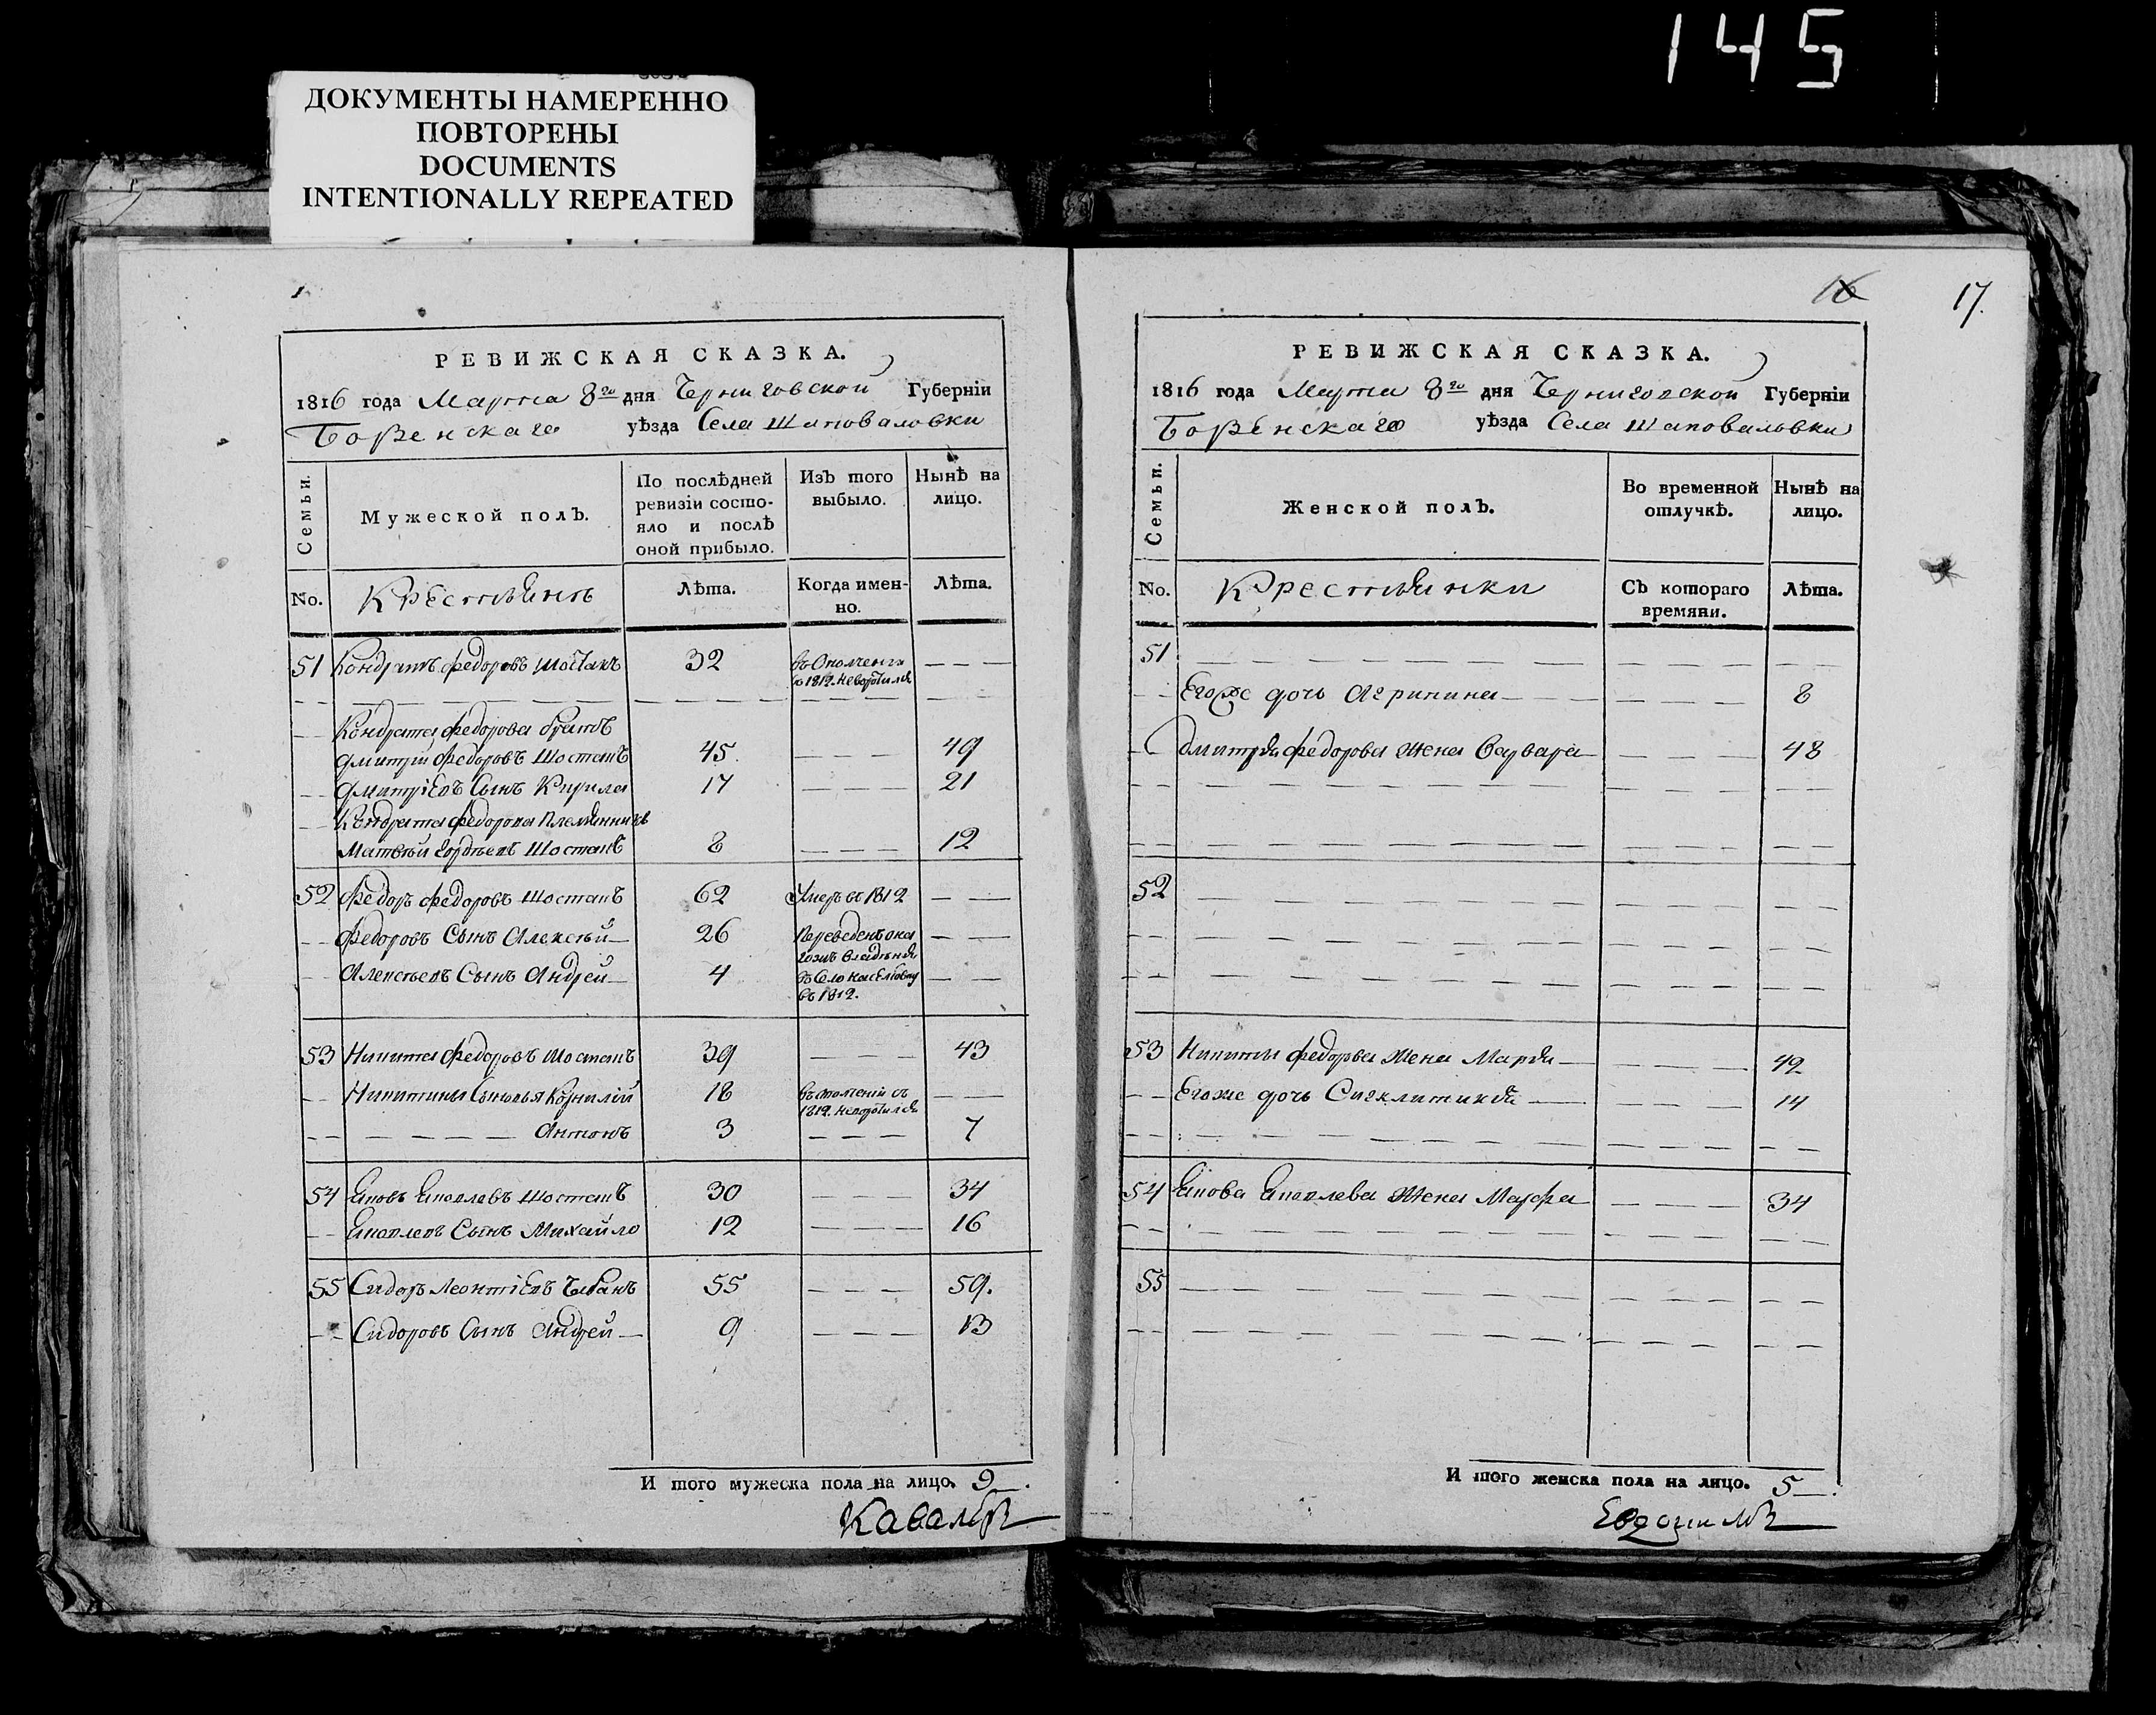 145
ДОКУМЕНТЫ НАМЕРЕННО
ПОВТОРЕНЫ
DOCUMENTS
INTENTIONALLY REPEATED
РЕВИЖСКАЯ СКАЗКА.
1816 года Марта 8го дня Черниговской Губернїи
Борзенскаго уѣзда Села Шаповаловки
Семьи.
Мужеской полъ.
По послѣдней ревизїи состояло и послѣ оной прибыло.
Изъ того выбыло.
Нынѣ на лицо.
No. Крестьянъ Лѣта. Когда именно. Лѣта.
51 Кондратъ Федоровъ Шостакъ 32 въ Ополченіи
с 1812. Неворотился
Кондрата Федорова братъ
Дмитрій Федоровъ Шостакъ 45 49
Дмитріевъ Сынъ Кирила 17 21
Кондрата Федорова Племянникъ
Матвѣй Гордѣевъ Шостакъ 8 12
52 Федоръ Федоровъ Шостакъ 62 Умеръ въ 1812
Федоровъ Сынъ Алексѣй 26 Переведенъ
Алексѣевъ Сынъ Андрей 4 въ Село
въ 1812.
53 Никита Федоровъ Шостакъ 39 43
Никитины Сыновья Корнилій 18 с
1812. Неворотился
Антонъ 3 7
54 Яковъ Яковлевъ Шостакъ 30 34
Яковлевъ Сынъ Михайло 12 16
55 Сидоръ Леонтіевъ Чабанъ 55 59.
Сидоровъ Сынъ Андрей 9 13
И того мужеска пола на лицо. 9.
16 17.
РЕВИЖСКАЯ СКАЗКА.
1816 года Марта 8го дня Черниговской Губернїи
Борзенскаго уѣзда Села Шаповаловки
Семьи.
Женской полъ.
Во временной отлучкѣ.
Нынѣ на лицо.
No. Крестьянки Съ котораго времяни. Лѣта.
51
Егоже дочь Агрипина 8
Дмитрія Федорова Жена Варвара 48
52
53 Никиты Федорова Жена Марья 42
Егоже дочь Сигклитикія 14
54 Якова Яковлева Жена Марфа 34
55
И того женска пола на лицо. 5.